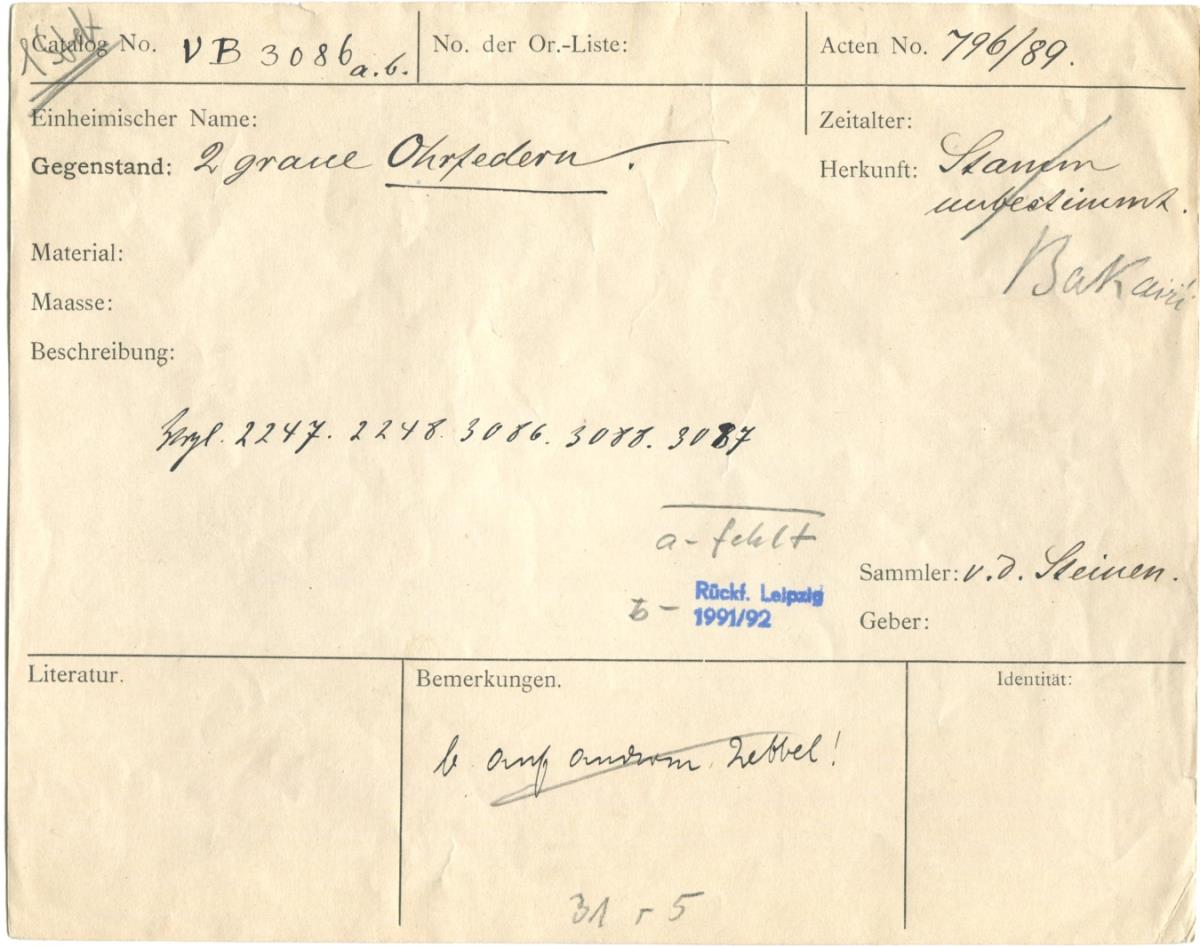 Catalog No. VB 3086 a.b.
No. der Or.-Liste:
Acten No. 796/89.
Einheimischer Name:
Gegenstand: 2 graue Ohrfedern.
Zeitalter:
Herkunft: Stamm
unbestimmt.
Bakairi
Material:
Maasse:
Beschreibung:
Vrgl. 2247. 2248. 3086. 3088. 3087
a - fehlt
b - Rückf. Leipzig
1991/92
Sammler: v. d. Steinen.
Geber:
Literatur.
Bemerkungen.
Identität:
b auf anderem Zettel!
31 r 5